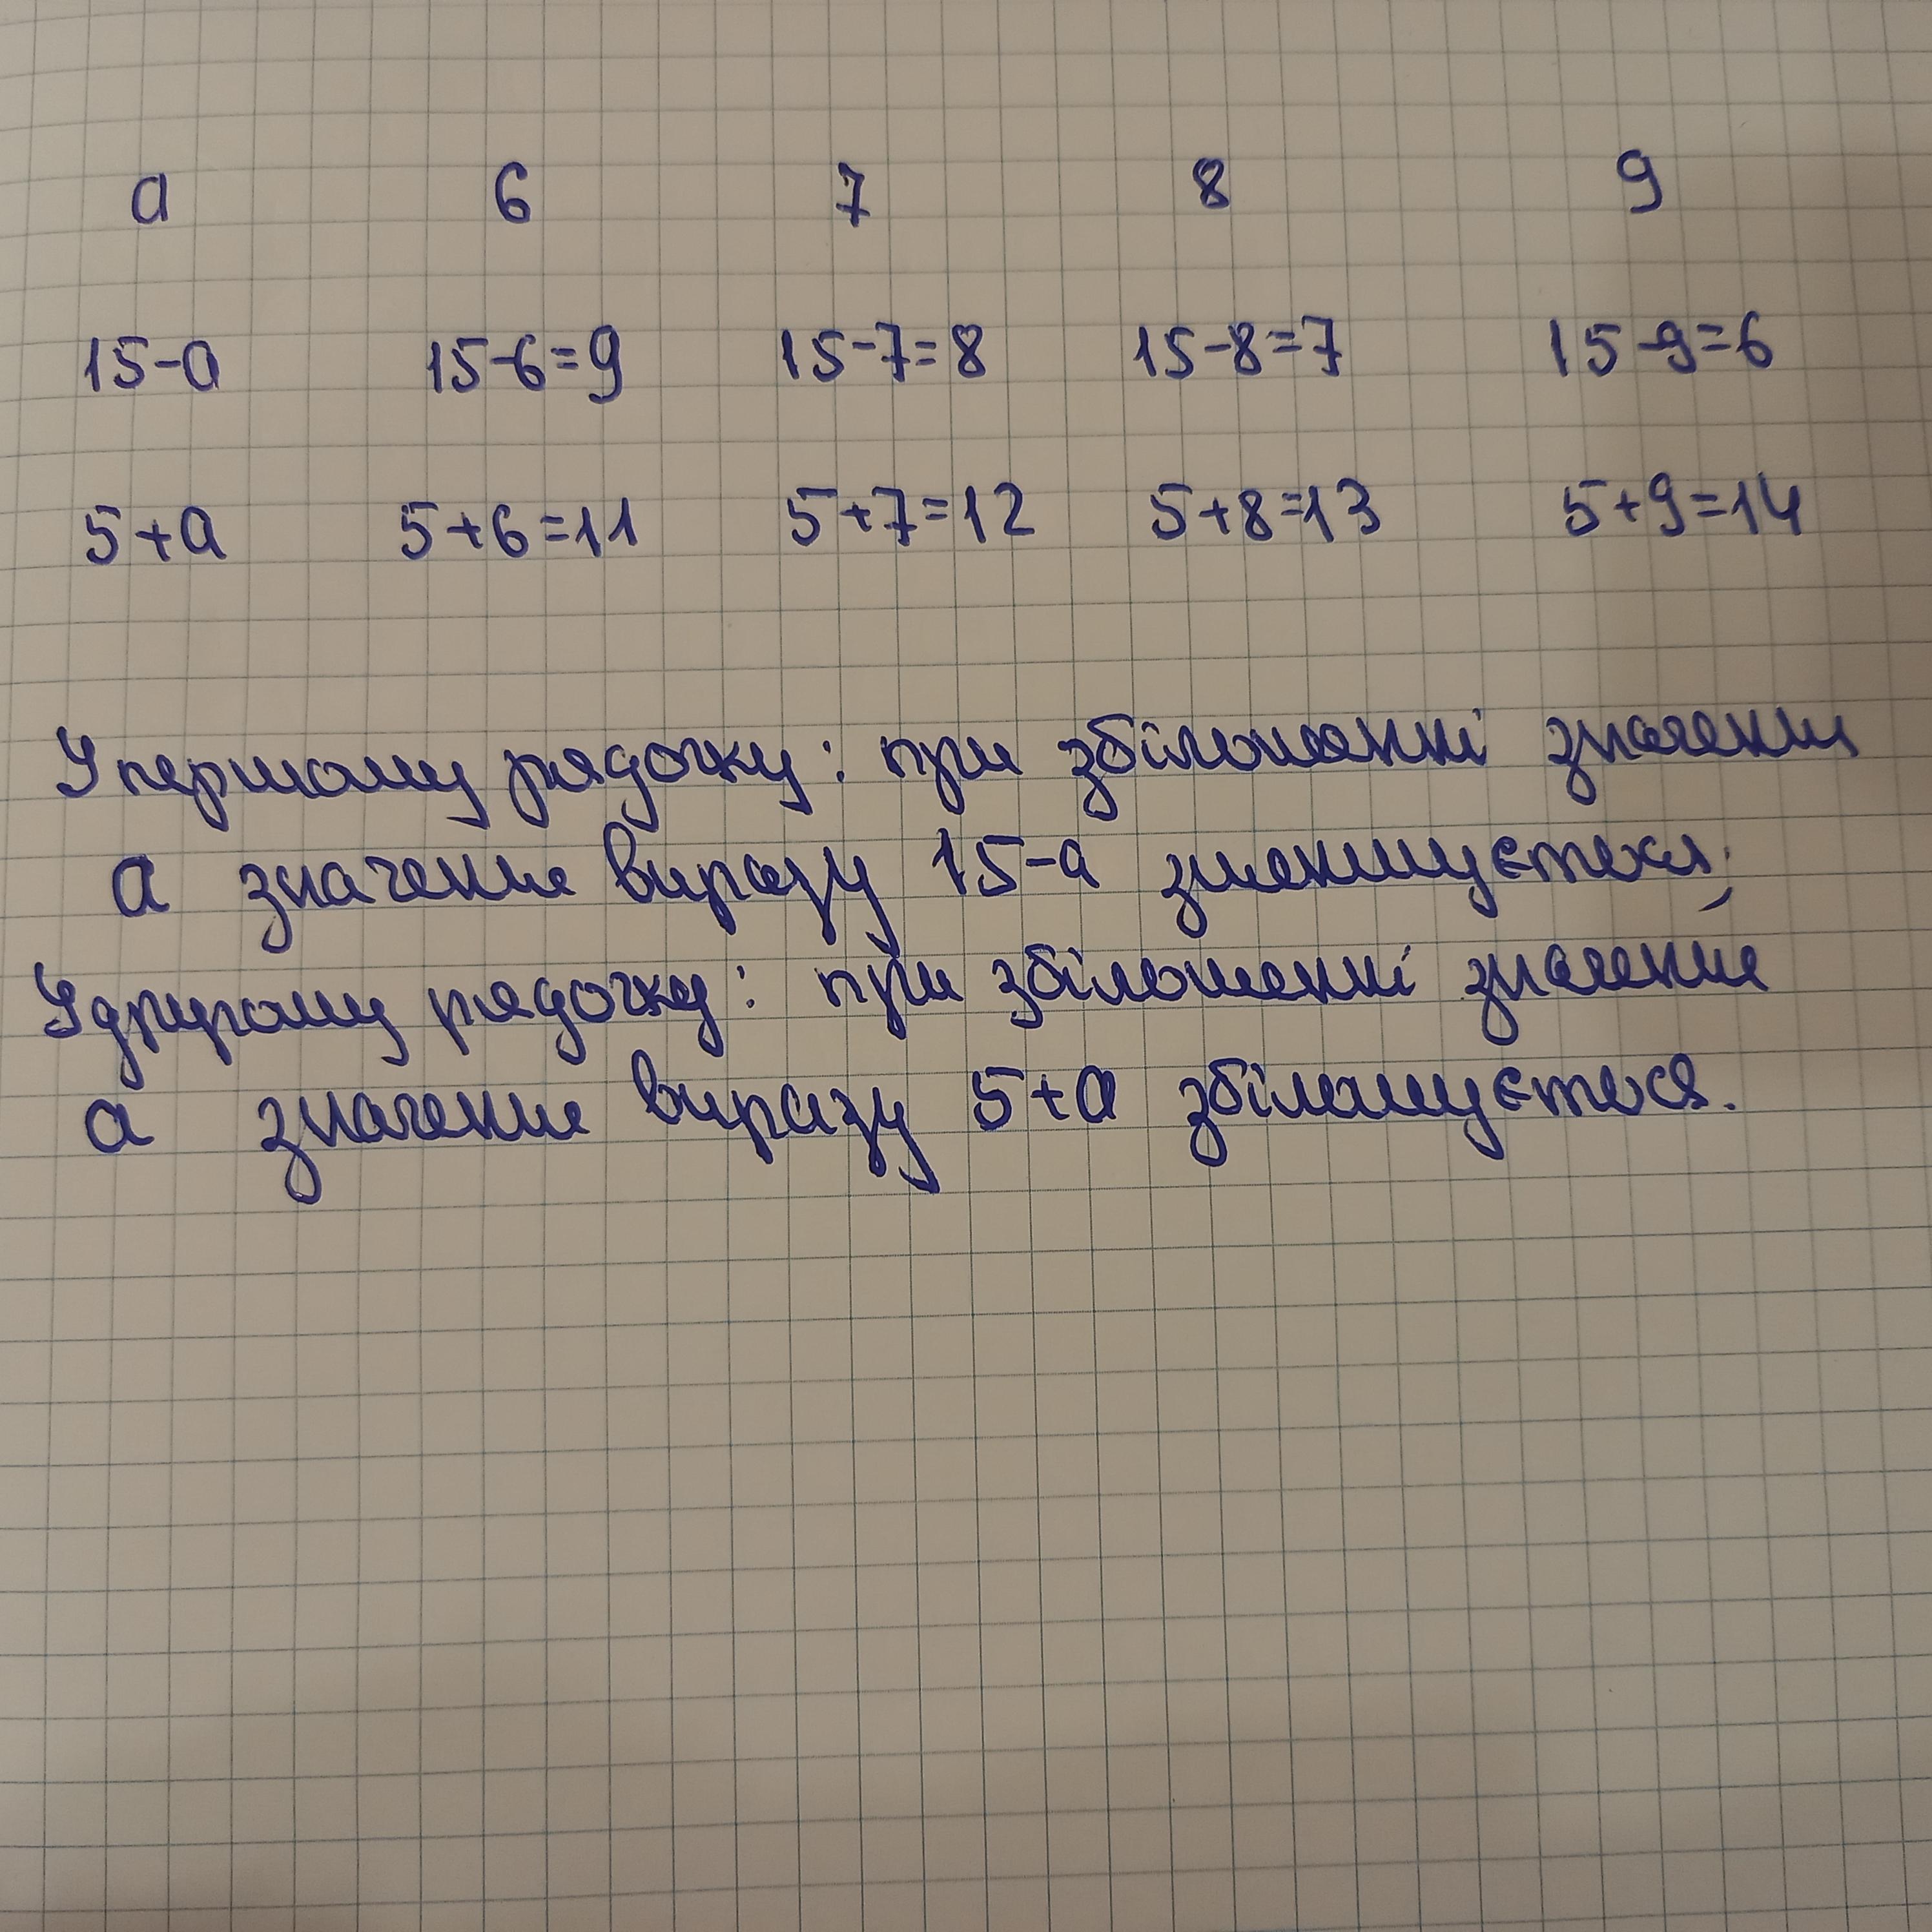 а 6 7 8 9
15-а 15-6=9 15-7=8 15-8=7 15-9=6
5+а 5+6=11 5+7=12 5+8=13 5+9=14
У першому рядочку: при збільшенні значення
а значення виразу 15-а зменшується;
У другому рядочку: при збільшенні значення
а значення виразу 5+а збільшується.